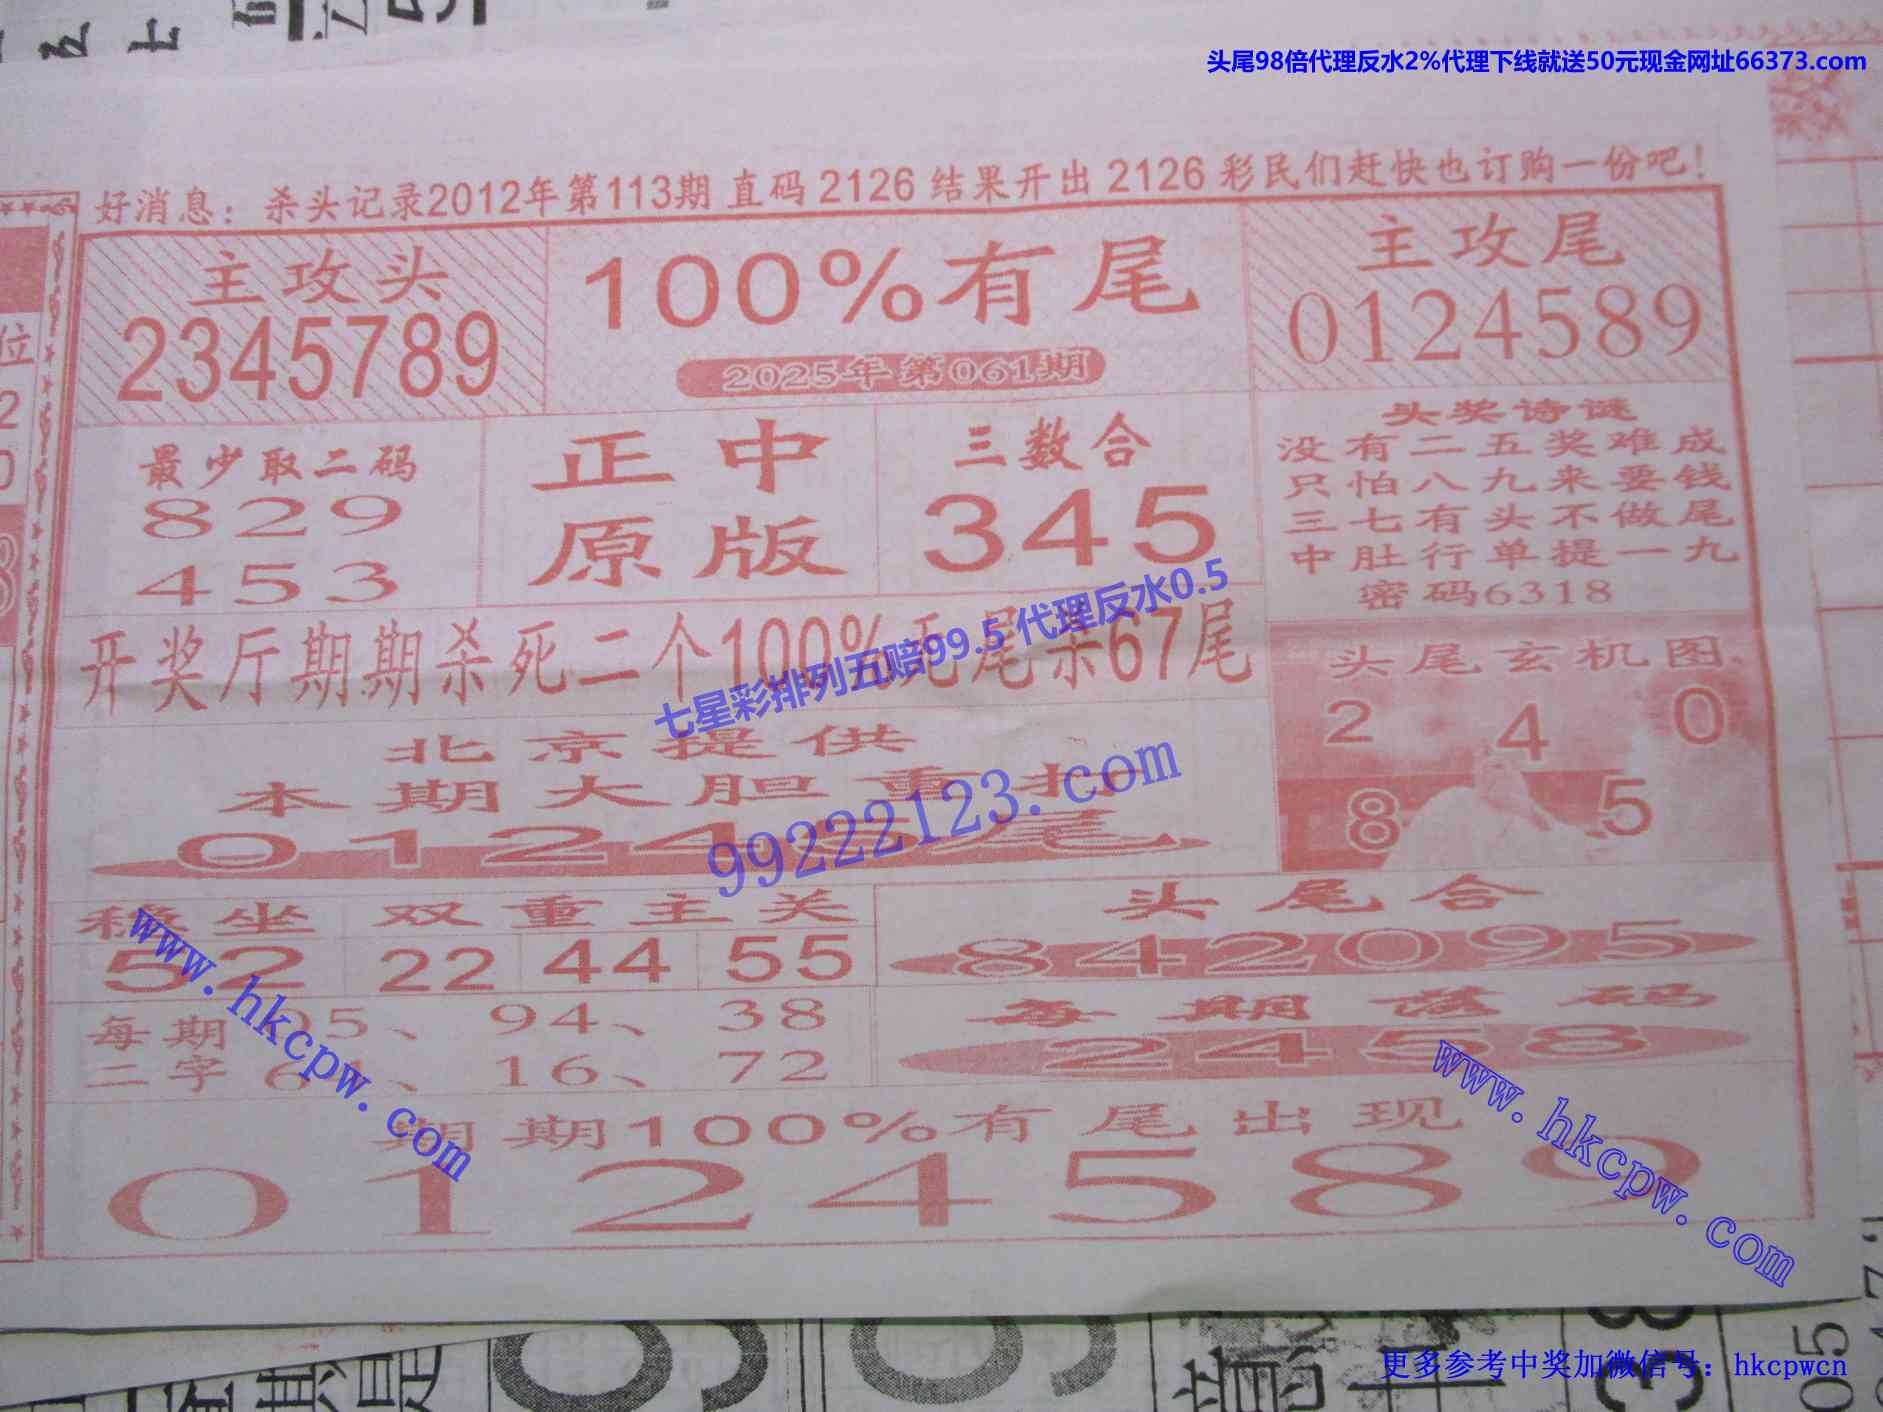 五 七
头尾98倍代理反水2%代理下线就送50元现金网址66373.com
好消息：杀头记录2012年第113期 直码 2126 结果开出 2126 彩民们赶快也订购一份吧！
主攻头
2345789
100%有尾
2025年第061期
主攻尾
0124589
位
2
0
8
最少取二码
829
453
正中
原版
三数合
345
头奖诗谜
没有二五奖难成
只怕八九来要钱
三七有头不做尾
中肚行单提一九
密码6318
开奖厅期期杀死二个100%无尾杀67尾
七星彩排列五赔99.5 代理反水0.5
头尾玄机图
2 4 0
8 5
北京提供
本期大胆重扣
0124 尾
99222123.com
稳坐 双重主关
52 22 44 55
头尾合
842095
每期 05、 94、 38
二字 6 、 16、 72
每期滋码
2458
www.hkcpw.com
www.hkcpw.com
期期100%有尾出现
0124589
更多参考中奖加微信号：hkcpwcn
05